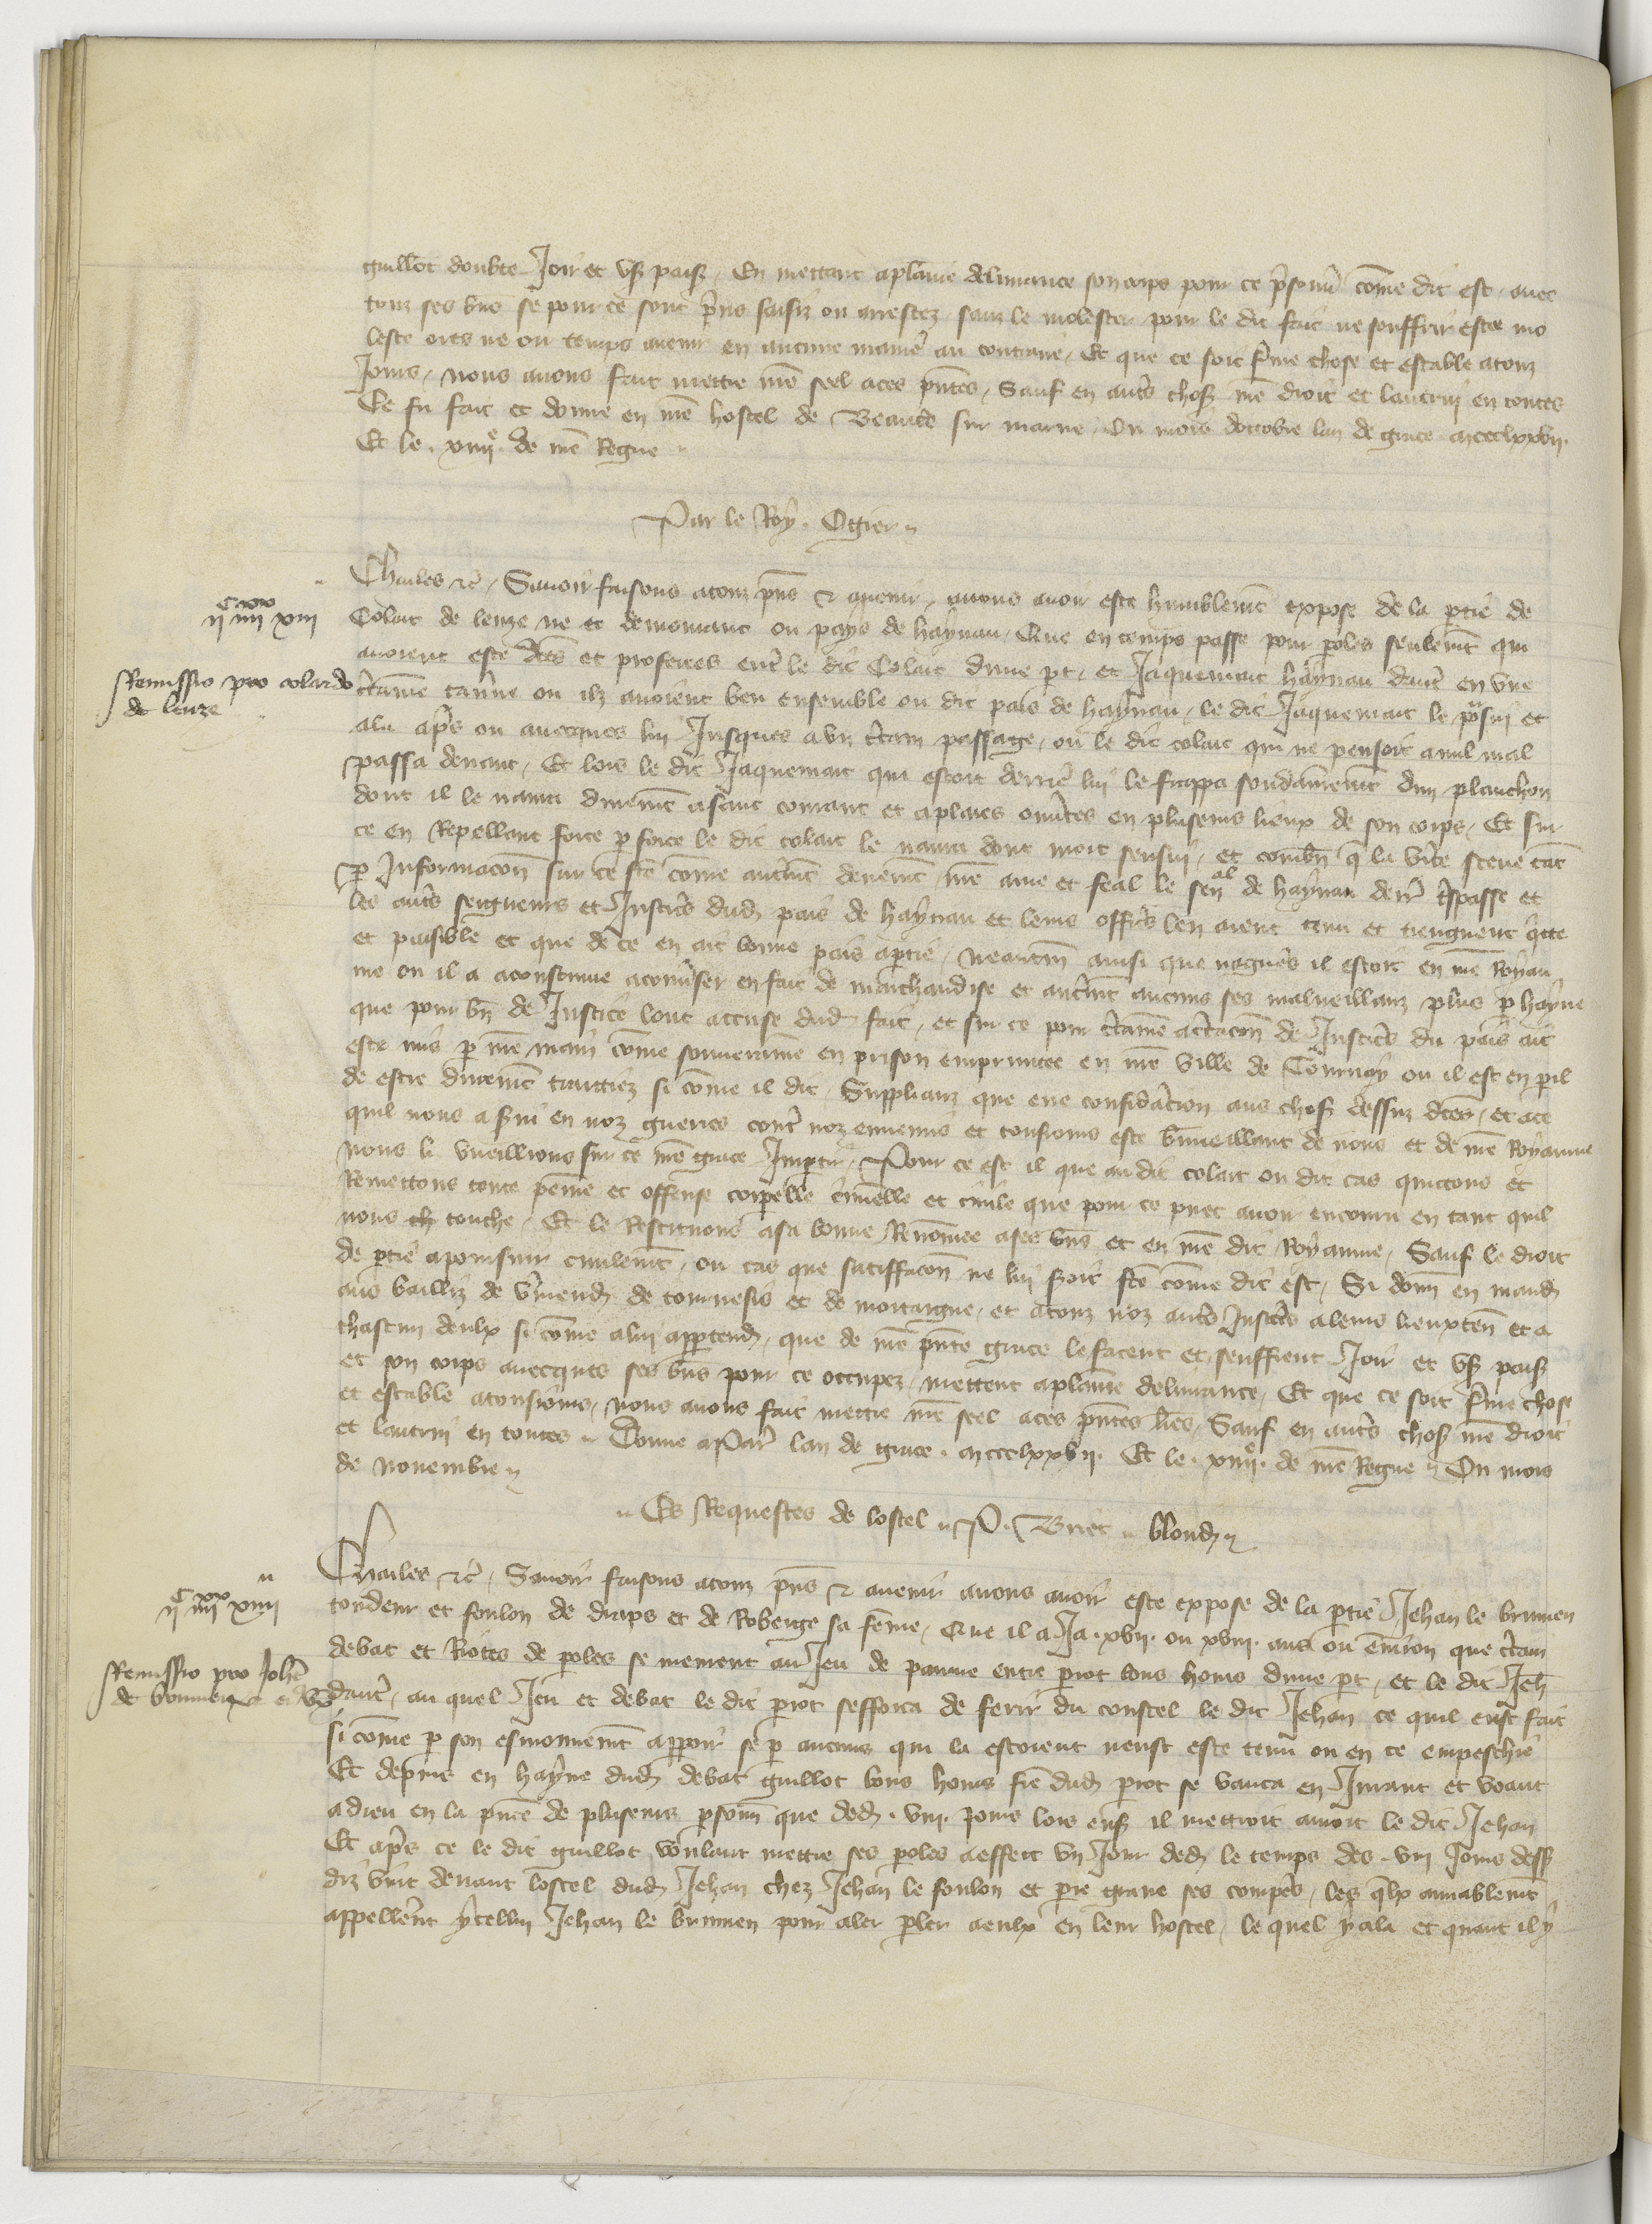 guillot doubte Joir et vser paisiblement En mettant a plaine delivrance son corps pour ce prisonnier come dit est avec
touz ses biens se pour ce sont prins saisiz ou arrestez sanz le molester pour le dit fait ne souffrir estre mo
leste ores ne ou temps avenir en aucune maniere au contraire Et que ce soit ferme chose et estable a touz
Jours nous avons fait mettre nostre seel a ces presentes Sauf en autres choses nostre droit et lautrui en toutes
Ce fu fait et donne en nostre hostel de Beaute sur marne Ou mois doctobre lan de grace mccclxxvij
Et le xiiije de nostre Regne
Par le Roy Ogier
ij c iiij xx xiij
Charles etc Savoir faisons a touz presens et avenir a nous avoir este humblement expose de la partie de
Colart de leuze ne et demourant ou pays de haynau Que en temps passe pour paroles seulement qui
Remissio pro colardo
de leuze
avoient este dites et proferees entre le dit Colart dune part et Jaquemart haynau dautre en une
certaine taverne ou ilz avoient beu ensemble ou dit pais de haynau le dit Jaquemart le poursui et
ala apres ou avecques lui Jusques a un certain passage ou le dit colart qui ne pensoit a nul mal
passa devant Et lors le dit Jaquemart qui estoit derriere lui le frappa soudainement dun planchon
dont il le navra durement a sanc courant et a plaies ouvertes en plusieurs lieux de son corps Et sur
ce en Repellant force par force le dit colart le navra dont mort sensui et combien que la verite sceue tant
par Informacion sur ce faite come autrement deuement nostre ame et feal le senal de haynau derrain trespasse et
les autres seigneurs et Justiciers dudit pais de haynau et leurs officiers len aient tenu et tiengnent quitte
et paisible et que de ce en ait bonne pais a partie neantmoins ainsi que nagueres il estoit en nostre Royau
me ou il a acoustume a converser en fait de marchandise et autrement aucuns ses malveillanz plus par hayne
que pour bien de Justice lont accuse dudit fait et sur ce pour certaine de Justiciers du pais ait
este mis par nostre main come souveraine en prison empruntee en nostre ville de Tournay ou il est en peril
de estre durement traittiez si come il dit Suppliant que eue consideracion aus choses dessus dites et a ce
quil nous a servi en noz guerres contre noz ennemis et tousiours este bienveillant de nous et de nostre Royaume
nous li vueillions sur ce nostre grace Impartir Pour ce est il que au dit colart ou dit cas quictons et
Remettons toute peine et offense corporelle criminelle et civile que pour ce puet avoir encouru en tant quil
nous ch touche Et le Restituons a sa bonne Renommee a ses biens et en nostre dit Royaume Sauf le droit
de partie a poursuir civilement ou cas que satiffacion ne lui seroit faite come dit est Si donnons en mandement
aus bailliz de vermendois de tournesis et de mortaigne et a touz noz autres Justiciers a leurs lieuxtenans et a
chascun deulx si come a lui appartendra que de nostre presente grace le facent et seuffrent Joir et vser paisiblement
et son corps avecques ses biens pour ce occupez mettent a plaine delivrance Et que ce soit ferme chose
et estable a tousiours nous avons fait mettre nostre seel a ces presentes lettres Sauf en autres choses nostre droit
et lautrui en toutes Donne a Paris lan de grace mccclxxvij Et le xiiije de nostre Regne Ou mois
de novembre
Es Requestes de lostel P Briet blondeau
ij c iiij xx xiiij
Charles etc Savoir faisons a touz presens et avenir a nous avoir este expose de la partie Jehan le brumen
tondeur et foulon de draps et de Roberge sa femme Que il a Ja xvij ou xviij ans ou environ que certain
Remissio pro Johanne
le brumen et eius uxore
debat et Riotes de paroles se meurent au Jeu de paume entre perrot bons homs dune part et le dit Jehan
dautre au quel Jeu et debat le dit perrot sefforca de ferir du coustel le dit Jehan ce quil eust fait
si come par son esmouvement apparoit se par aucuns qui la estoient neust este tenu ou en ce empeschie
Et depuis en hayne dudit debat guillot bons homs frere dudit perrot se vanta en Jurant et voant
a dieu en la presence de plusieurs personnes que dedens viij Jours lors ensuivant il mettroit a mort le dit Jehan
Et apres ce le dit guillot voulant mettre ses paroles a effect un Jour dedens le temps des viij Jours dessus
diz vint devant lostel dudit Jehan chez Jehan le foulon et perre grave ses comperes les quelx amiablement
appellerent ycellui Jehan le brumen pour aler parler a eulx en leur hostel le quel y ala et quant il y